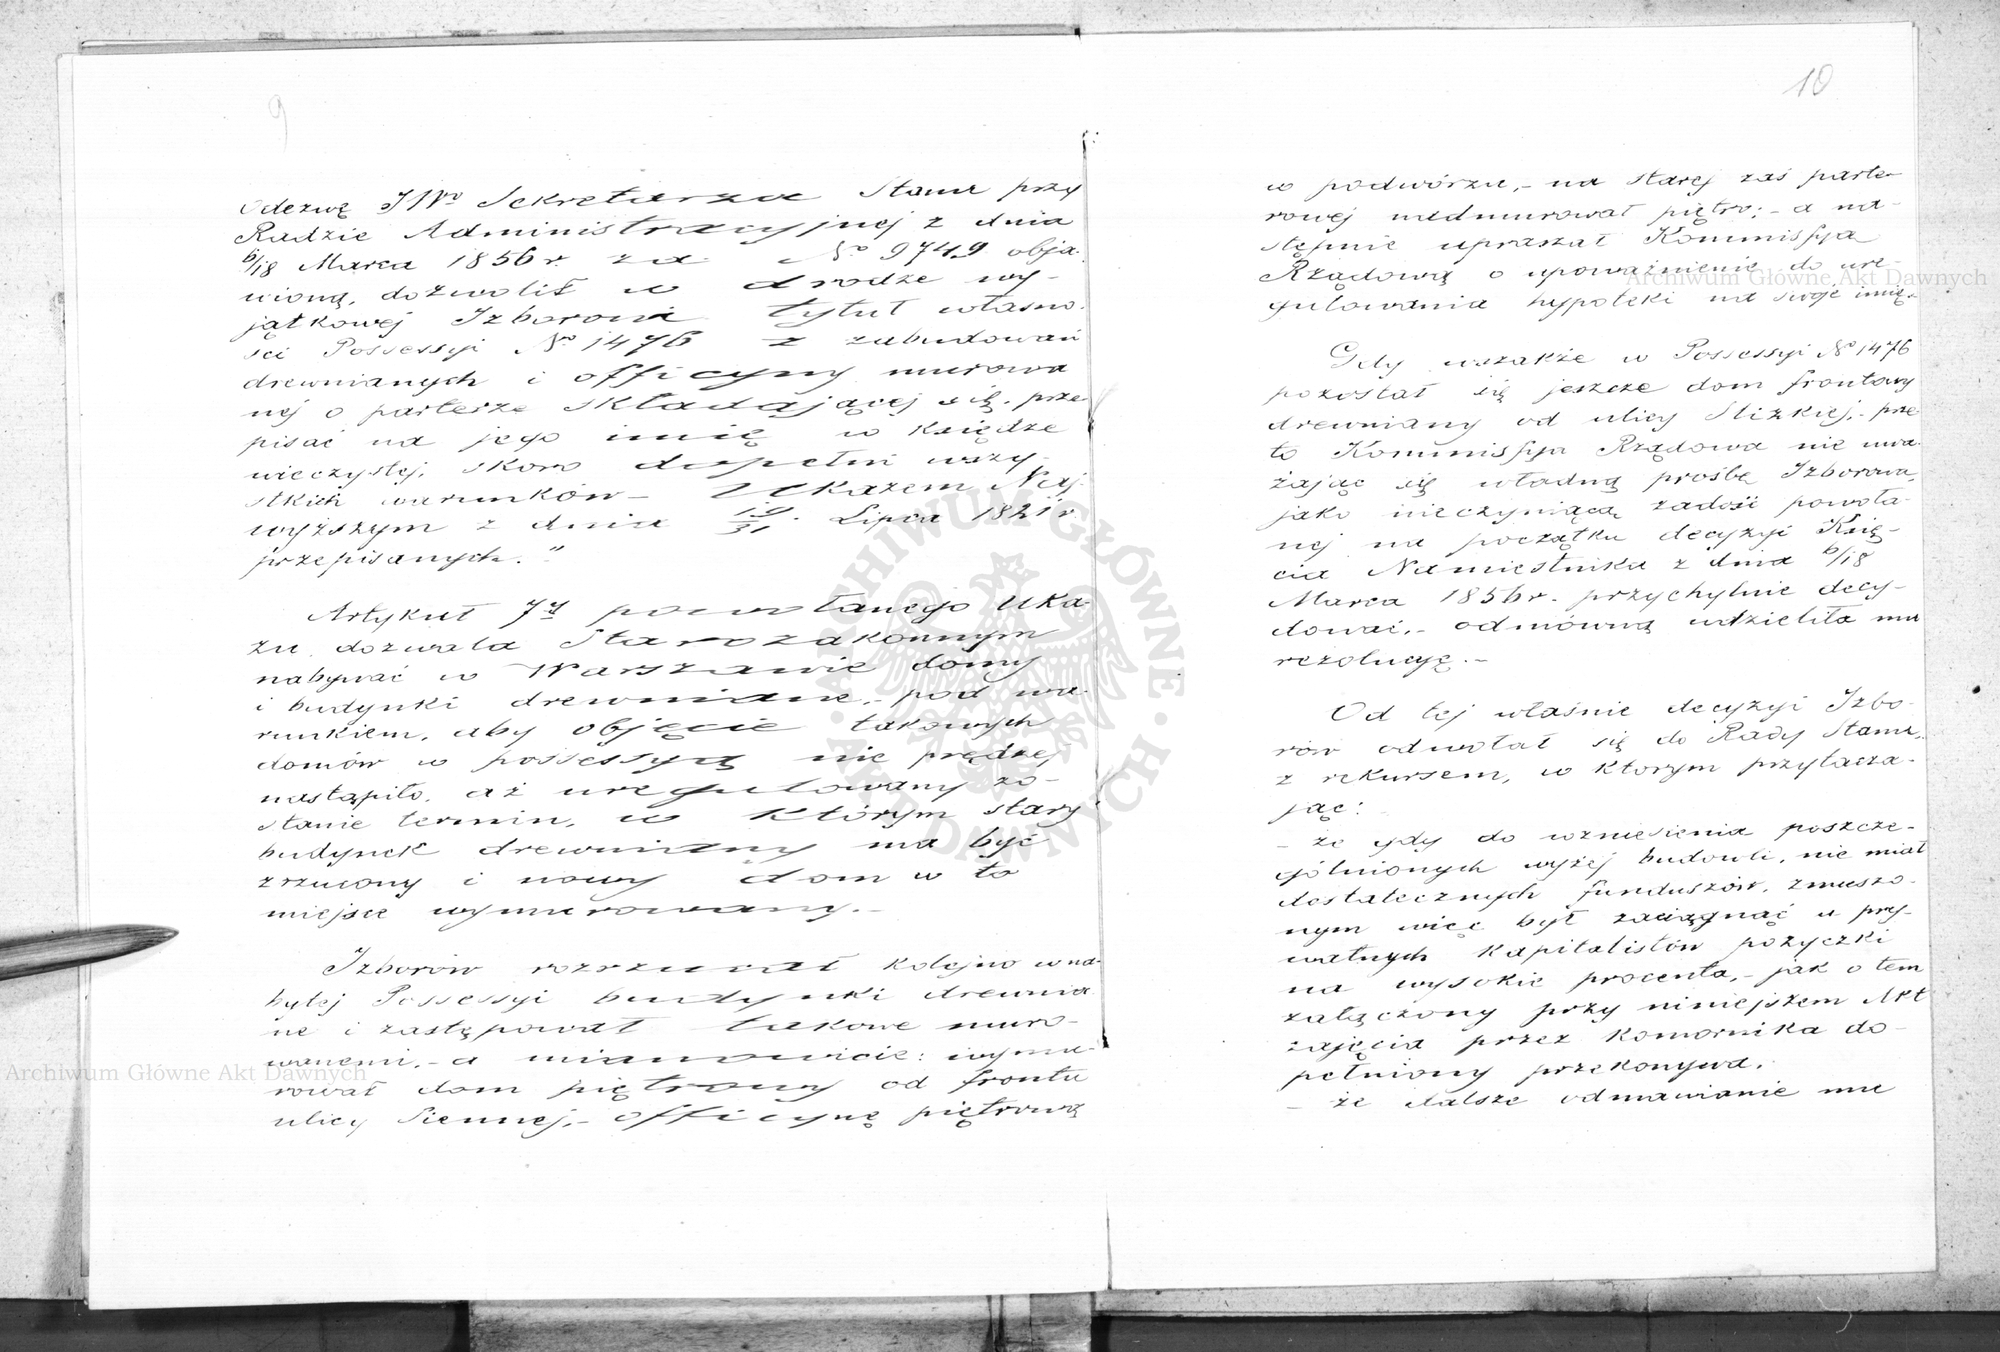 9
odezwę JWo Sekretarza Stanu przy
Radzie Administracyjnej z dnia
6/18 Marca 1856 r. za No 9749 obja-
wioną, dozwolił w drodze wy-
jątkowej Izborowi tytuł własno-
ści Possessyi No 1476 z zabudowań
drewnianych i officyny murowa
nej o parterze składającej się, prze
pisać na jego imię w księdze
wieczystej, skoro dopełni wszy-
stkich warunków Ukazem Naj-
wyższym z dnia 19/31 Lipca 1821 r.
przepisanych."
Artykuł 7y powołanego Uka-
zu dozwala Starozakonnym
nabywać w Warszawie domy
i budynki drewniane, pod wa-
runkiem, aby objęcie takowych
domów w possessyą nie prędzej
nastąpiło, aż uregulowany zo-
stanie termin, w którym stary
budynek drewniany ma być
zrzucony i nowy dom w to
miejsce wymurowany.-
Izborów rozrzucał kolejno w na-
bytej Possessyi budynki drewnia
ne i zastępował takowe muro-
wanemi,- a mianowicie: wymu-
rował dom piętrowy od frontu
ulicy Siennej,- officynę piętrową
10
w podwórzu,- na starej zaś parte-
rowej nadmurował piętro;- a na-
stępnie upraszał Kommissya
Rządową o upoważnienie do ure-
gulowania hypoteki na swoje imię.-
Gdy wszakże w Possessyi No 1476
pozostał się jeszcze dom frontowy
drewniany od ulicy Slizkiej,- prze
to Kommissya Rządowa nie uwa-
żając się władną prośbę Izborowa,
jako nieczyniącą zadość powoła-
nej na początku decyzyi Księ-
cia Namiestnika z dnia 6/18
Marca 1856 r. przychylnie decy-
dować,- odmówną udzieliła mu
rezolucyę.-
Od tej właśnie decyzyi Izbo-
rów odwołał się do Rady Stanu,
z rekursem, w którym przytacza-
jąc:
- że gdy do wzniesienia poszcze-
gólnionych wyżej budowli, nie miał
dostatecznych funduszów, zmuszo-
nym więc był zaciągnąć u pry-
watnych kapitalistów pożyczki
na wysokie procenta,- jak o tem
załączony przy niniejszem Akt
zajęcia przez Komornika do-
pełniony przekonywa,
- że dalsze odmawianie mu
Archiwum Główne Akt Dawnych
Archiwum Główne Akt Dawnych
ARCHIWUM GŁÓWNE AKT DAWNYCH